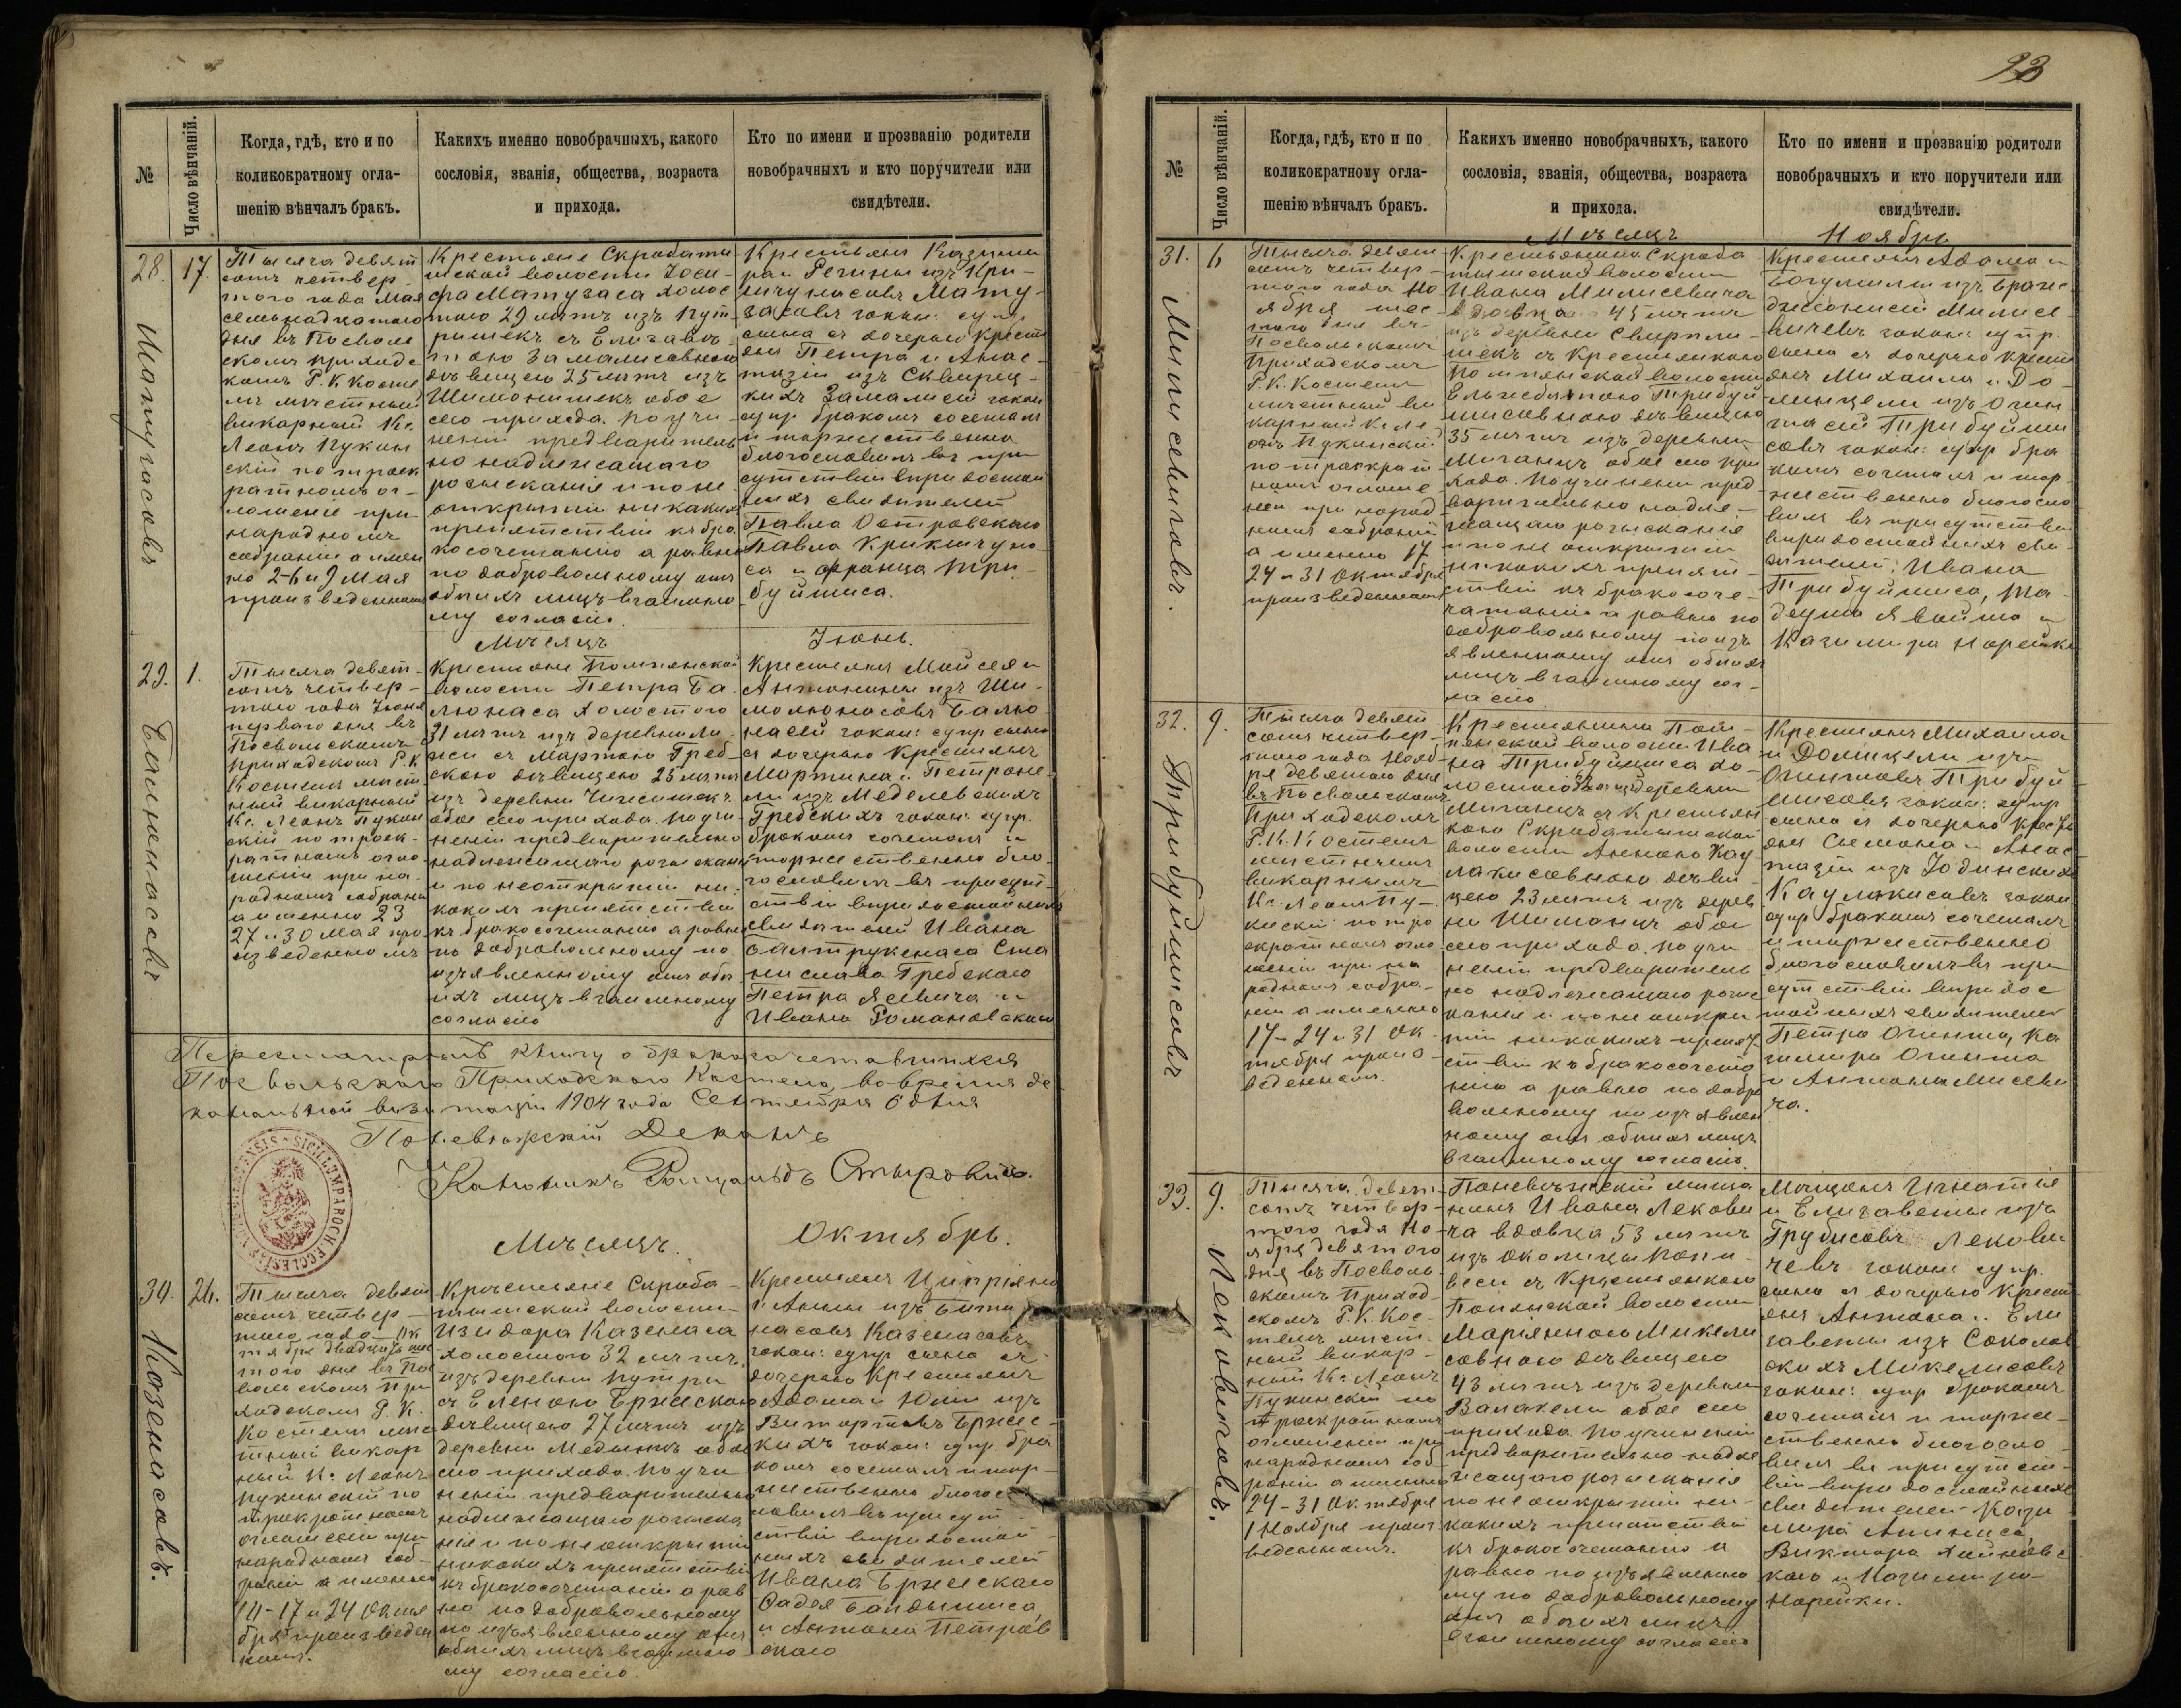 №
Число вѣнчаній.
Когда, гдѣ, кто и по
коликократному огла-
шенію вѣнчалъ бракъ.
Какихъ именно новобрачныхъ, какого
сословія, званія, общества, возраста
и прихода.
Кто по имени и прозванію родители
новобрачныхъ и кто поручители или
свидѣтели.
28.
17.
Матузасовъ
Тысяча девят
сотъ четвер-
того года Мая
семьнадцатаго
дня въ Посволь
скомъ приходс
комъ Р. К. Косте
лѣ мѣстный
викарный Кс.
Леонъ Пукин
скій по троек
ратномъ ог-
лошеніе при
народномъ
собраніи а имен
но 2-6 и 9 Мая
произведенномъ
Крестьяне Скробаты
шской волости Іоси-
фа Матузаса холос
того 29 лѣтъ изъ Пут-
ришекъ съ Елизавѣ-
тою Замалисовною
дѣвицею 25 лѣтъ изъ
Шимонишекъ обое
сего прихода. По учи-
неніи предваритель
но надлежащаго
розысканія и по не
открытіи никакихъ
препятствій къ бра
косочетанію а равно
по добровольному отъ
обоихъ лицъ взаимно
му согласію.
Крестьянъ Казими
ра и Регины изъ Кри-
кщунасовъ Мату-
засовъ закон: супр.
сына съ дочерью крест
янъ Петра и Анас-
тазіи изъ Сквирец-
кихъ Замалисей закон
супр бракомъ сочеталъ
и торжественно
благословилъ въ при
сутствіи вѣридостой
ныхъ свидѣтелей
Павла Островскаго
Павла Крикшчуна-
са и Франца Три-
буйшиса.
Мѣсяцъ
Іюнь.
29.
1.
Балюнасовъ
Тысяча девят-
сотъ четвер-
таго года Іюня
перваго дня въ
Посвольскомъ
приходскомъ Р. К
Костелѣ мѣст
ный викарный
Кс. Леонъ Пукин
скій по троек-
ратномъ огло-
шеніи при на-
родномъ собраніи
а именно 23
27 и 30 Мая про
изведенномъ
Крестяне Помпянской
волости Петра Ба-
люнаса холостого
31 лѣтъ изъ деревни
съ Мартою Греб-
скою дѣвицею 25 лѣтъ
изъ деревни
обое сего прихода. По учи-
неніи предварительно
надлежащаго розыскан
и по неоткрытіи ни-
какихъ препятствій
къ бракосочетанію а равно
по добровольному по
изъявленному отъ обо
ихъ лицъ взаимному
согласію
Крестьянъ Мойсея и
Антонины изъ Ши-
молюнасовъ Балю-
насей закон: супр сына
съ дочерью крестьянъ
Мартина и Петроне-
ли изъ Меделевскихъ
Гребскихъ закон: супр.
бракомъ сочеталъ и
торжественно бла-
гословилъ въ присут-
ствіи вѣридостойныхъ
свидѣтелей Ивана
Ста
нислава Гребскаго
Петра Ясевича и
Ивана Романовскаго
Пересматривалъ книгу о бракосочетавшихся
Посвольскаго Приходскаго Костела, во время де
канальной визитаціи 1904 года Сентября 6 дня
Поневѣжскій Деканъ
Каноникъ Ромуальдъ
SIGILLUM PAROCH. ECCLESIAE
Мѣсяцъ.
Октябрь.
30.
26.
Козенасовъ.
Тысяча девят
сотъ четвер-
таго года Ок
тября двадцать шес
того дня въ Пос
вольскомъ При
ходскомъ Р. К.
Костелѣ мѣс
тный викар
ный Кс. Леонъ
Пукинскій по
троекратномъ
оглашеніи при
народномъ соб-
раніи а именно
14-17 и 24 Октя
бря произведен
номъ.
Крестьяне Скроба-
тышской волости
Изидора Казенаса
холостого 32 лѣтъ
изъ деревни Путри
съ Еленою Бржескою
дѣвицею 27 лѣтъ изъ
деревни обое
сего прихода. По учи
неніи предварительно
надлежащаго розыска
нія и по неоткрытіи
никакихъ препятствій
къ бракосочетаніи а рав
но по добровольному
по изъявленному отъ
обоихъ лицъ взаимно
му согласію.
Крестьянъ Ципріяна
и Анны изъ
насовъ Казенасовъ
закон: супр сына съ
дочерью Крестьянъ
Адама и Юліи изъ
Витартовъ Бржес-
кихъ закон: супр бра
комъ сочеталъ и тор-
жественно благос
ловилъ въ присут
ствіи вѣридостой-
ныхъ свидѣтелей
Ивана Бржескаго
Фадея
и Антона Петров
скаго
93
№
Число вѣнчаній.
Когда, гдѣ, кто и по
коликократному огла-
шенію вѣнчалъ бракъ.
Какихъ именно новобрачныхъ, какого
сословія, званія, общества, возраста
и прихода.
Кто по имени и прозванію родители
новобрачныхъ и кто поручители или
свидѣтели.
Мѣсяцъ
Ноябрь
31.
6
Милисевичовъ.
Тысяча девят
сотъ четвер-
того года Но
ября шес-
того дня въ
Посвольскомъ
Приходскомъ
Р. К. Костели
мѣстный ви
карный Кс Ле
онъ Пукинскій
по троекрат
номъ оглоше
ніи при народ
номъ собраніи
а именно 17
24 и 31 Октября
произведенномъ
Крестьянина Скроба
тышской волости
Ивана Милисевича
вдовца 45 лѣтъ
изъ деревни Свирпли-
шекъ съ Крестьянкою
Помпянской волости
Ельжебѣтою Трибуй
шисовною дѣвицею
35 лѣтъ изъ деревни
Миганцъ обое сего при
хода. По учинени пред-
варительно надле-
жащаго розысканія
и по не открытіи
никакихъ препят-
ствій къ бракосоче-
танію а равно по
добровольному по изъ
явленному отъ обоихъ
лицъ взаимному сог-
ласію
Крестьянъ Адама и
Богумилы изъ
Милисе-
вичевъ закон: супр.
сына съ дочерью крест
янъ Михаила и До-
мицели изъ Огин
тасей Трибуйши
совъ закон: супр бра
комъ сочеталъ и тор
жественно благосло
вилъ въ присутствіи
вѣридостойныхъ сви-
дѣтелей: Ивана
Трибуйшиса, Та-
деуша и
Казимира Норейки
32.
9.
Трибуйшисовъ
Тысяча девят
сотъ четвер-
таго года Нояб-
ря девятого дня
въ Посвольскомъ
Приходскомъ
Р. К. Костелѣ
мѣстнымъ
викарнымъ
Кс. Леонъ Пу-
кинскій по тро
екратномъ огло
шеніи при на
родномъ собра-
ніи а именно
17-24 и 31 Ок
тября произ-
веденномъ.
Крестьянина Пом-
пянской волости Ива
на Трибуйшиса хо-
лостого изъ деревни
Миганцъ съ Крестьян
кою Скробатышской
волости Анною Кау-
лакисовною дѣви
цею 23 лѣтъ изъ дерев
ни Шиманцъ обое
сего прихода. По учи
неніи предваритель
но надлежащаго розыс
канія и по не откры
тіи никакихъ препят
ствій къ бракосочета
нію а равно по добро
вольному по изъявлен
ному отъ обоихъ лицъ
взаимному согласію.
Крестьянъ Михаила
и Домицели изъ
Огинтовъ Трибуй
шисовъ закон: супр
сына съ дочерью крест
янъ Симона и Анас
тазіи изъ Іодинскихъ
Каулакисовъ закон
супр бракомъ сочеталъ
и торжественно
благословилъ въ при
сутствіи вѣридос
тойныхъ свидѣтелей
Петра Огинта, Ка
зимира Огинта
и Антона Мисеви
ча.
33.
9.
Лековичовъ.
Тысяча девят-
сотъ четвер-
того года Но-
ября девятого
дня въ Посволь-
скомъ Приход-
скомъ Р. К. Кос-
телѣ мѣст-
ный викар-
ный Кс Леонъ
Пукинскій по
троекратномъ
оглошеніи при
народномъ соб
раніи а именно
24-31 Октября
1 Ноября произ
веденномъ.
Поневѣжскій мѣща
нинъ Ивана Лекови
ча вдовца 53 лѣтъ
изъ околицы Попи-
веси съ Крестьянкою
Помпянской волости
Маріянною Микели
совною дѣвицею
43 лѣтъ изъ деревни
Валакели обое сего
прихода. По учиненіи
предварительно надле
жащаго розысканія
по не открытіи ни-
какихъ препятствій
къ бракосочетанію а
равно по изъявленно
му по добровольному
отъ обоихъ лицъ
взаимному согласію
Мѣщанъ Игнатія
и Елизаветы изъ
Грубисовъ Лекови
чевъ закон: супр.
сына съ дочерью крест
янъ Антона и Ели
заветы изъ Соколов
скихъ Микелисовъ
закон: супр бракомъ
сочеталъ и торже-
ственно благосло-
вилъ въ присутст-
віи вѣридостойныхъ
свидѣтелей Кази-
мира
Виктора
каго и Казимира
Норейки.